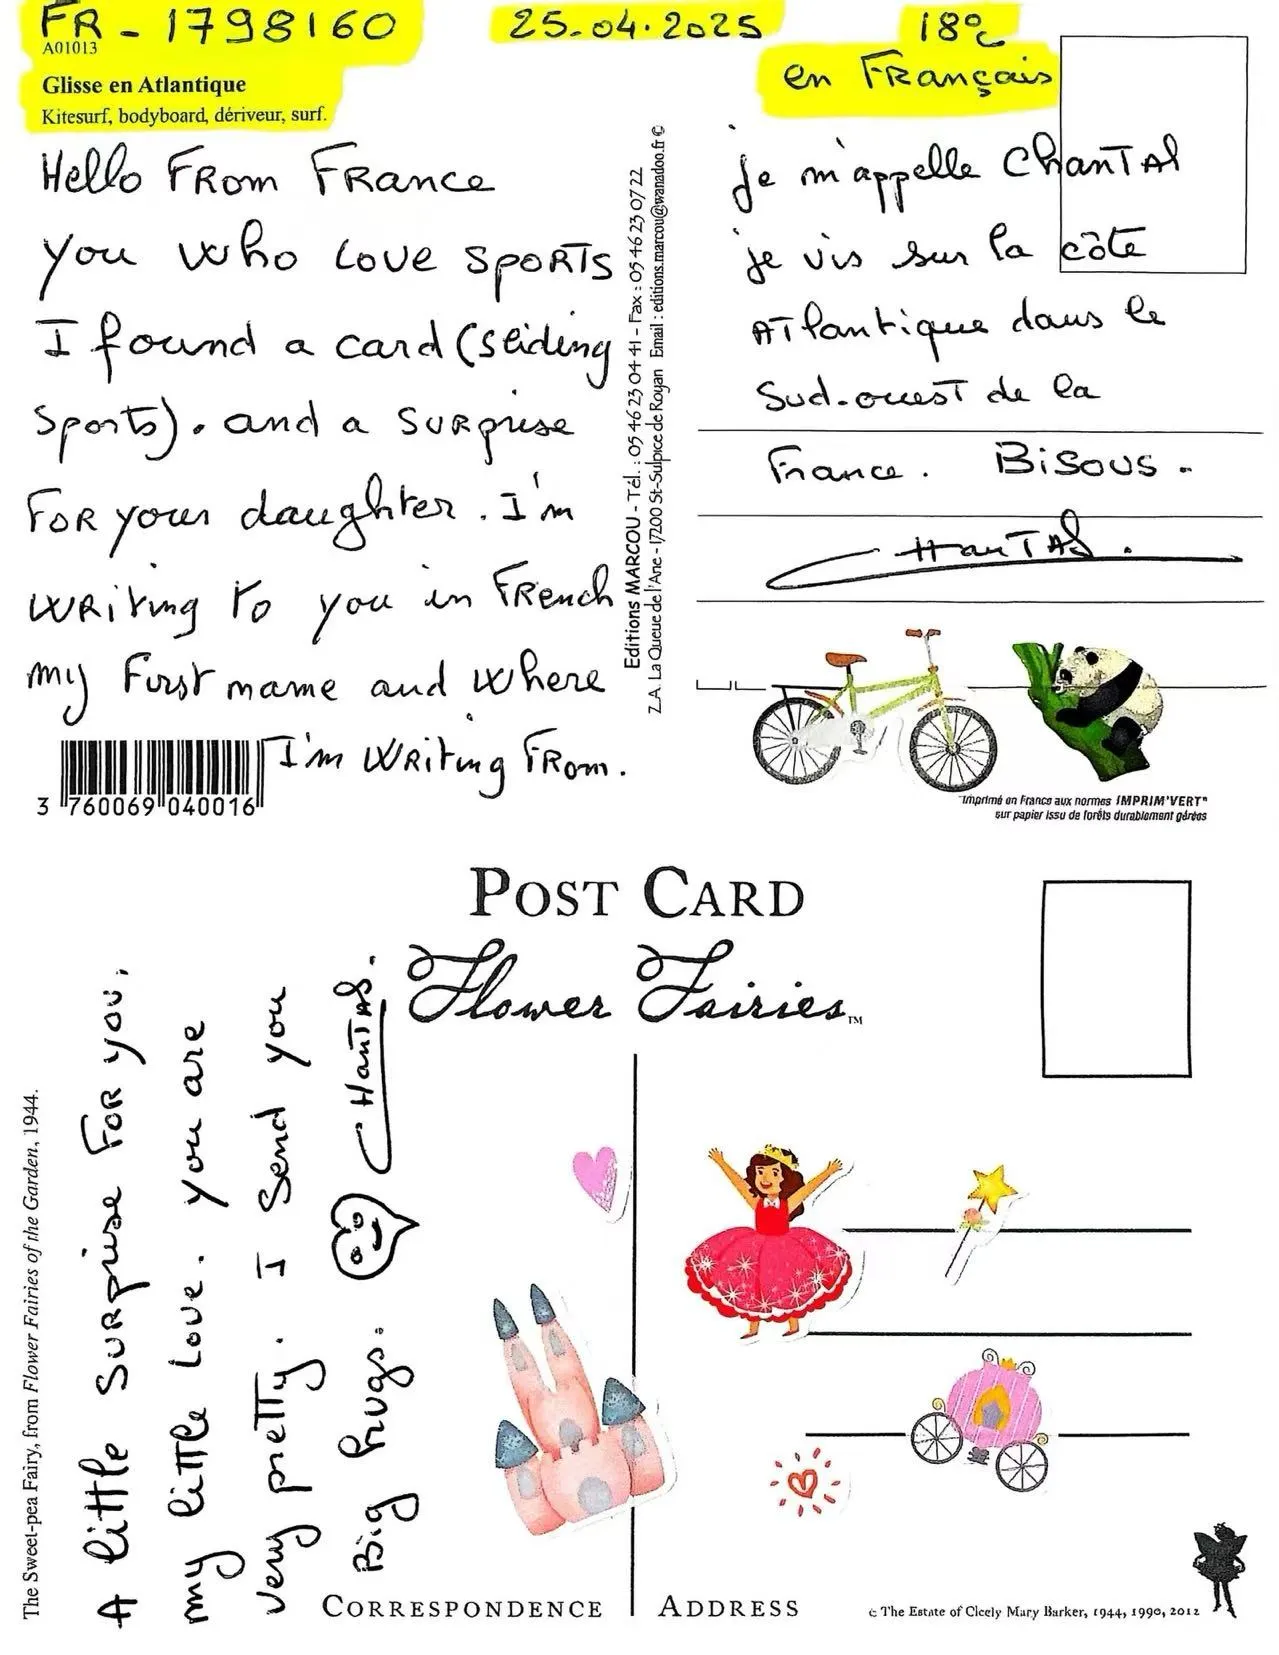 FR - 1798160
25.04.2025
18°c
A01013
Glisse en Atlantique
Kitesurf, bodyboard, dériveur, surf.
en Français
Hello From France
you who love sports
I found a card (sliding
sports). and a surprise
For your daughter. I'm
writing to you in French
my first name and where
I'm writing From.
3 760069 040016
Editions MARCOU - Tél. : 05 46 23 04 41 - Fax : 05 46 23 07 22
Z.A. La Queue de l'Ane - 17200 St-Sulpice de Royan Email : editions.marcou@wanadoo.fr ©
je m'appelle Chantal
je vis sur la côte
Atlantique dans le
Sud-ouest de la
France. Bisous.
Chantal.
Imprimé en France aux normes IMPRIM'VERT®
sur papier issu de forêts durablement gérées
POST CARD
Flower Fairies™
The Sweet-pea Fairy, from Flower Fairies of the Garden, 1944.
A little surprise For you,
my little love. you are
very pretty. I send you
Big hugs. Chantal.
CORRESPONDENCE
ADDRESS
© The Estate of Cicely Mary Barker, 1944, 1990, 2012